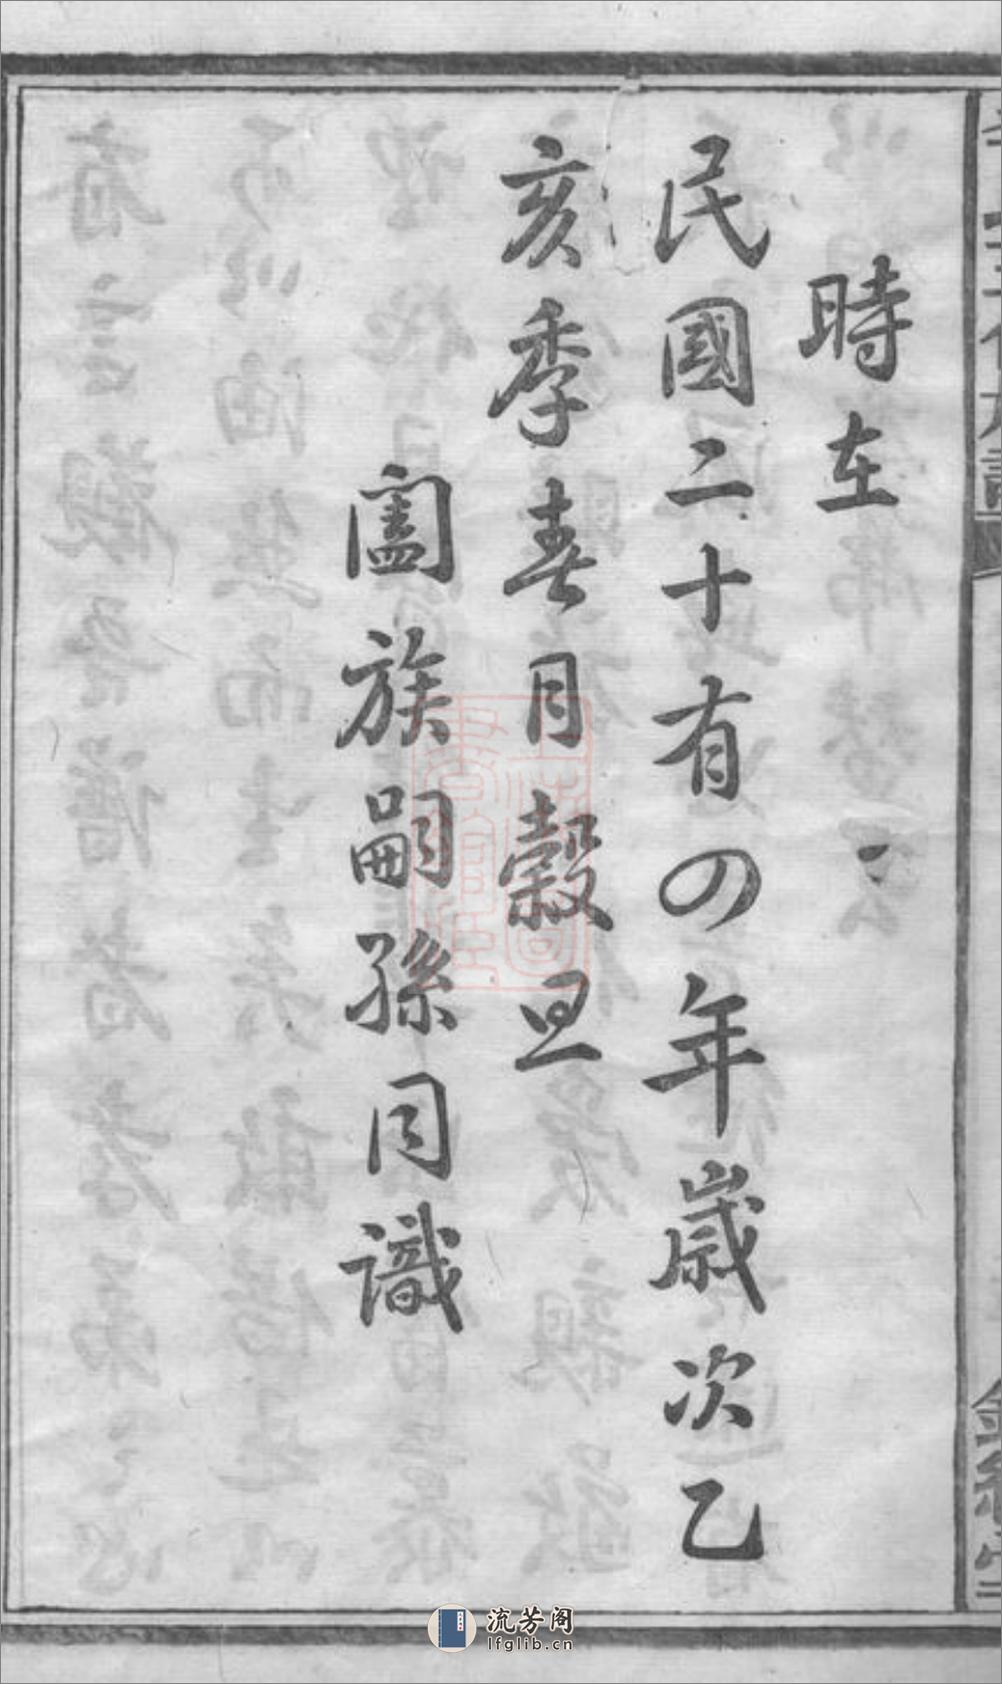 時在
民國二十有四年歲次乙
亥季春月穀旦
闔族嗣孫同識
流芳阁
lfglib.cn